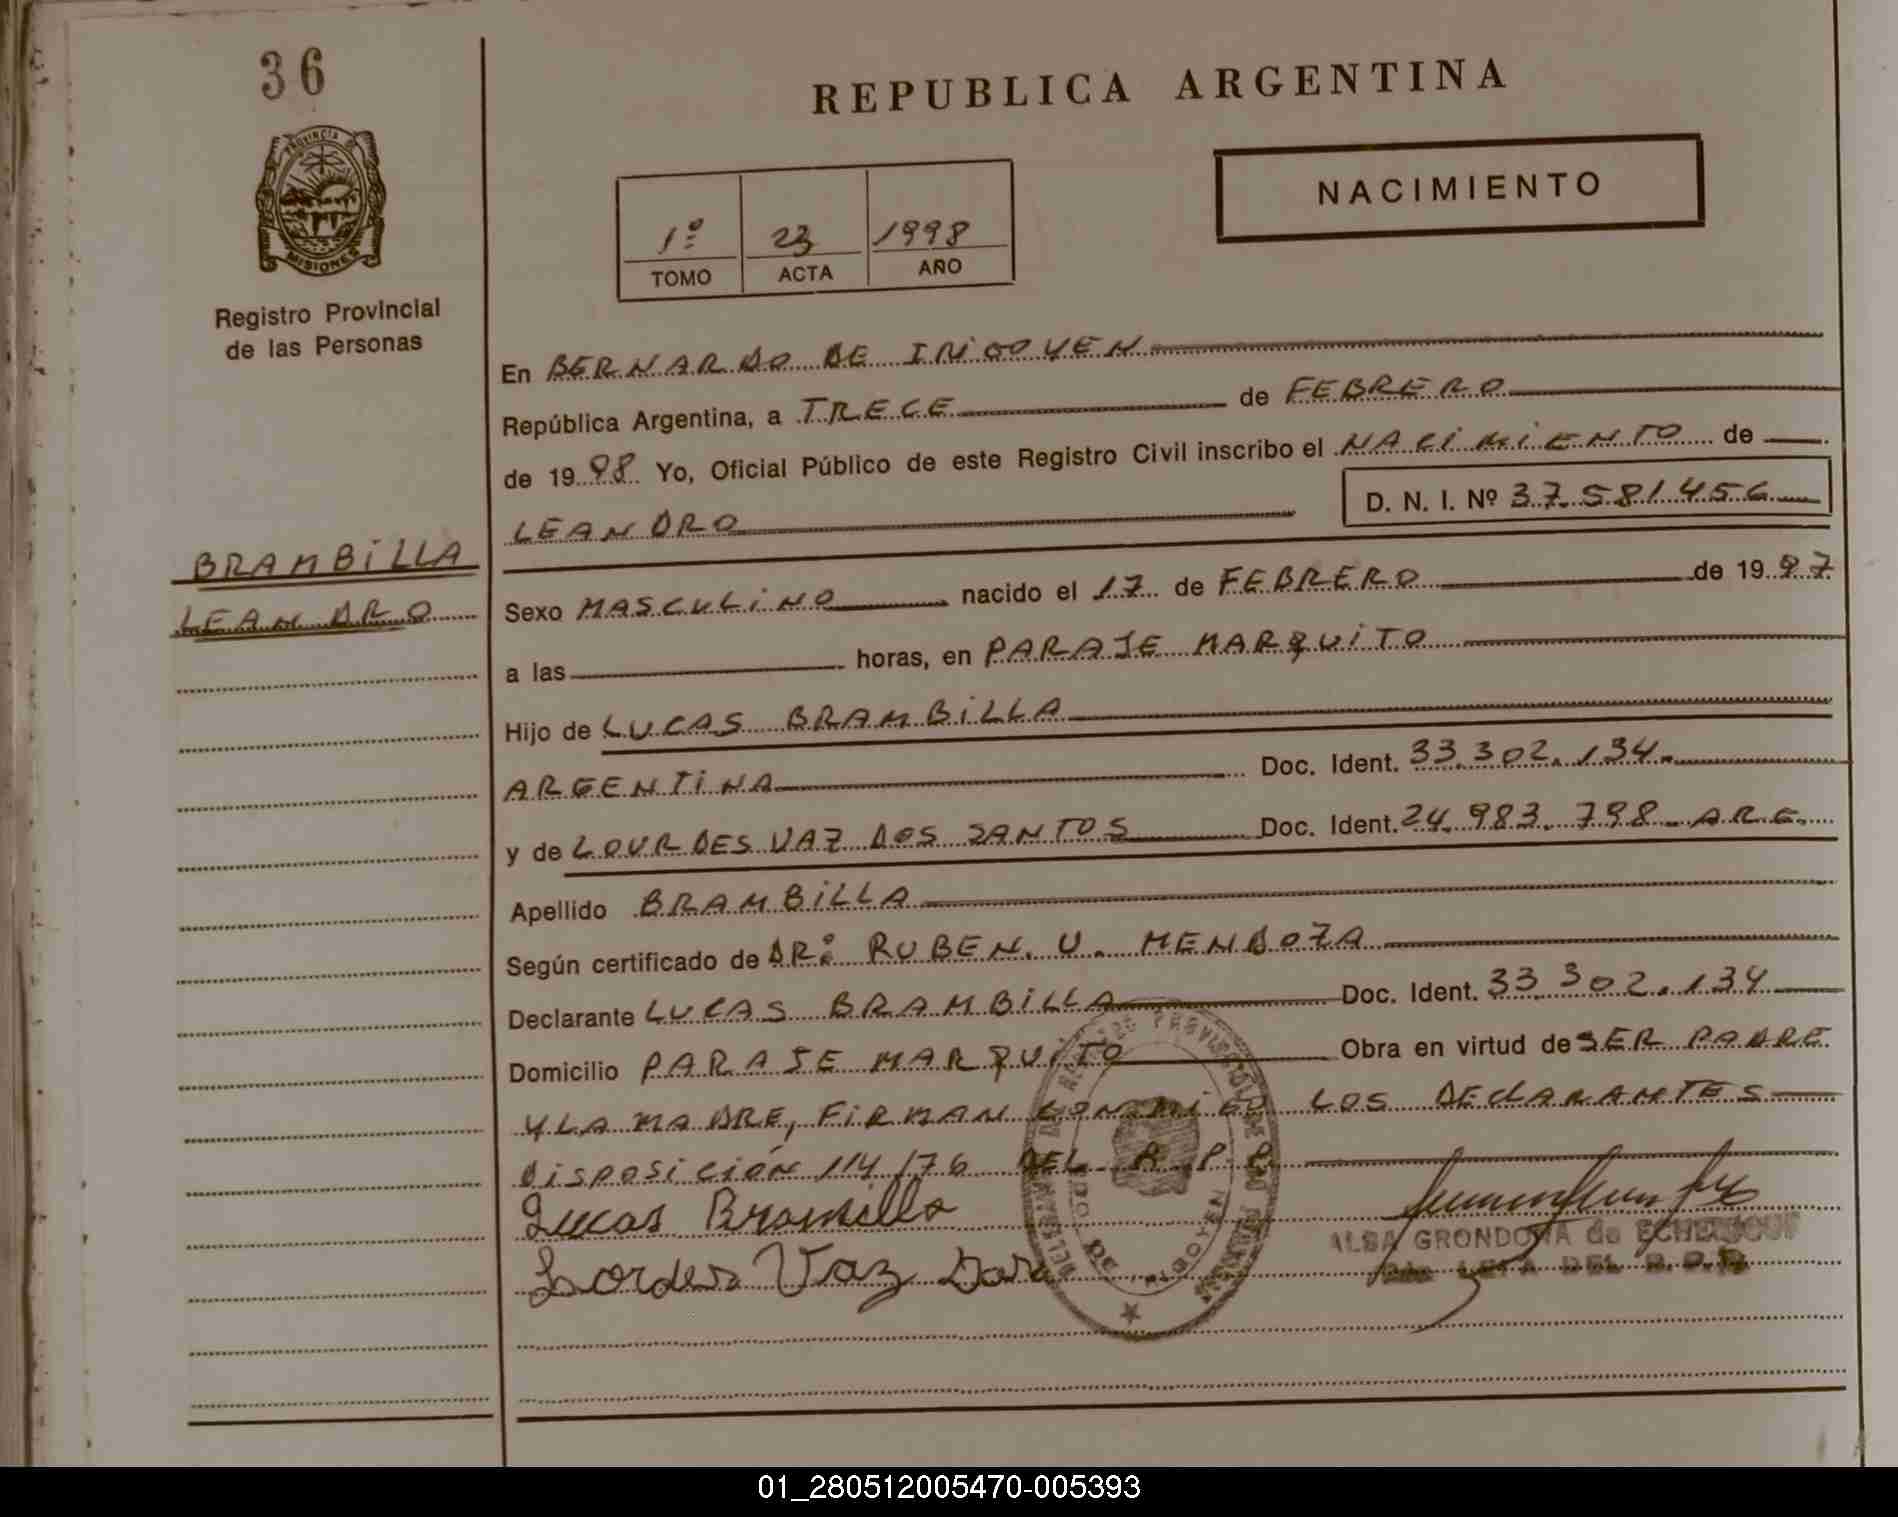 36
REPUBLICA ARGENTINA
NACIMIENTO
PROVINCIA
MISIONES
1º 23 1998
TOMO ACTA AÑO
Registro Provincial
de las Personas
En BERNARDO DE IRIGOYEN
República Argentina, a TRECE de FEBRERO
de 1998 Yo, Oficial Público de este Registro Civil inscribo el NACIMIENTO de
LEANDRO D. N. I. Nº 37.581.456
BRAMBILLA
LEANDRO
Sexo MASCULINO nacido el 17 de FEBRERO de 1997
a las horas, en PARAJE MARQUITO
Hijo de LUCAS BRAMBILLA
ARGENTINA Doc. Ident. 33.302.134.
y de LOURDES VAZ DOS SANTOS Doc. Ident. 24.983.798 ARG.
Apellido BRAMBILLA
Según certificado de DR: RUBEN. U. MENDOZA
Declarante LUCAS BRAMBILLA Doc. Ident. 33.302.134
Domicilio PARAJE MARQUITO Obra en virtud de SER PADRE
Y LA MADRE, FIRMAN CONMIGO LOS DECLARANTES
DISPOSICIÓN 114/76 DEL R.P.P.
Lucas Brambilla
Lordes Vaz Dos
ALBA GRONDONA de
DEL R.P.P.
01_280512005470-005393